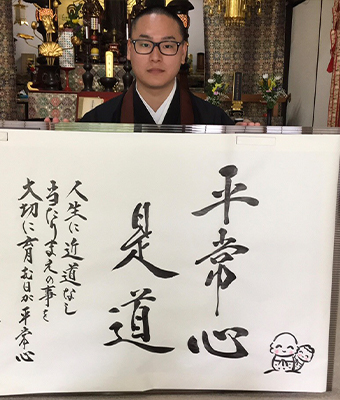 平常心
是道
人生に近道なし
当たりまえの事を
大切に育む日が平常心